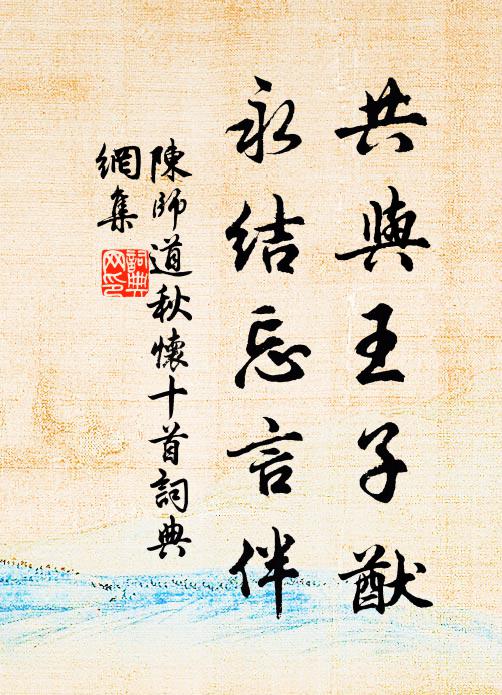 共與王子猷
永結忘言伴
陳師道秋懷十首詞典
網集
詞典
网印